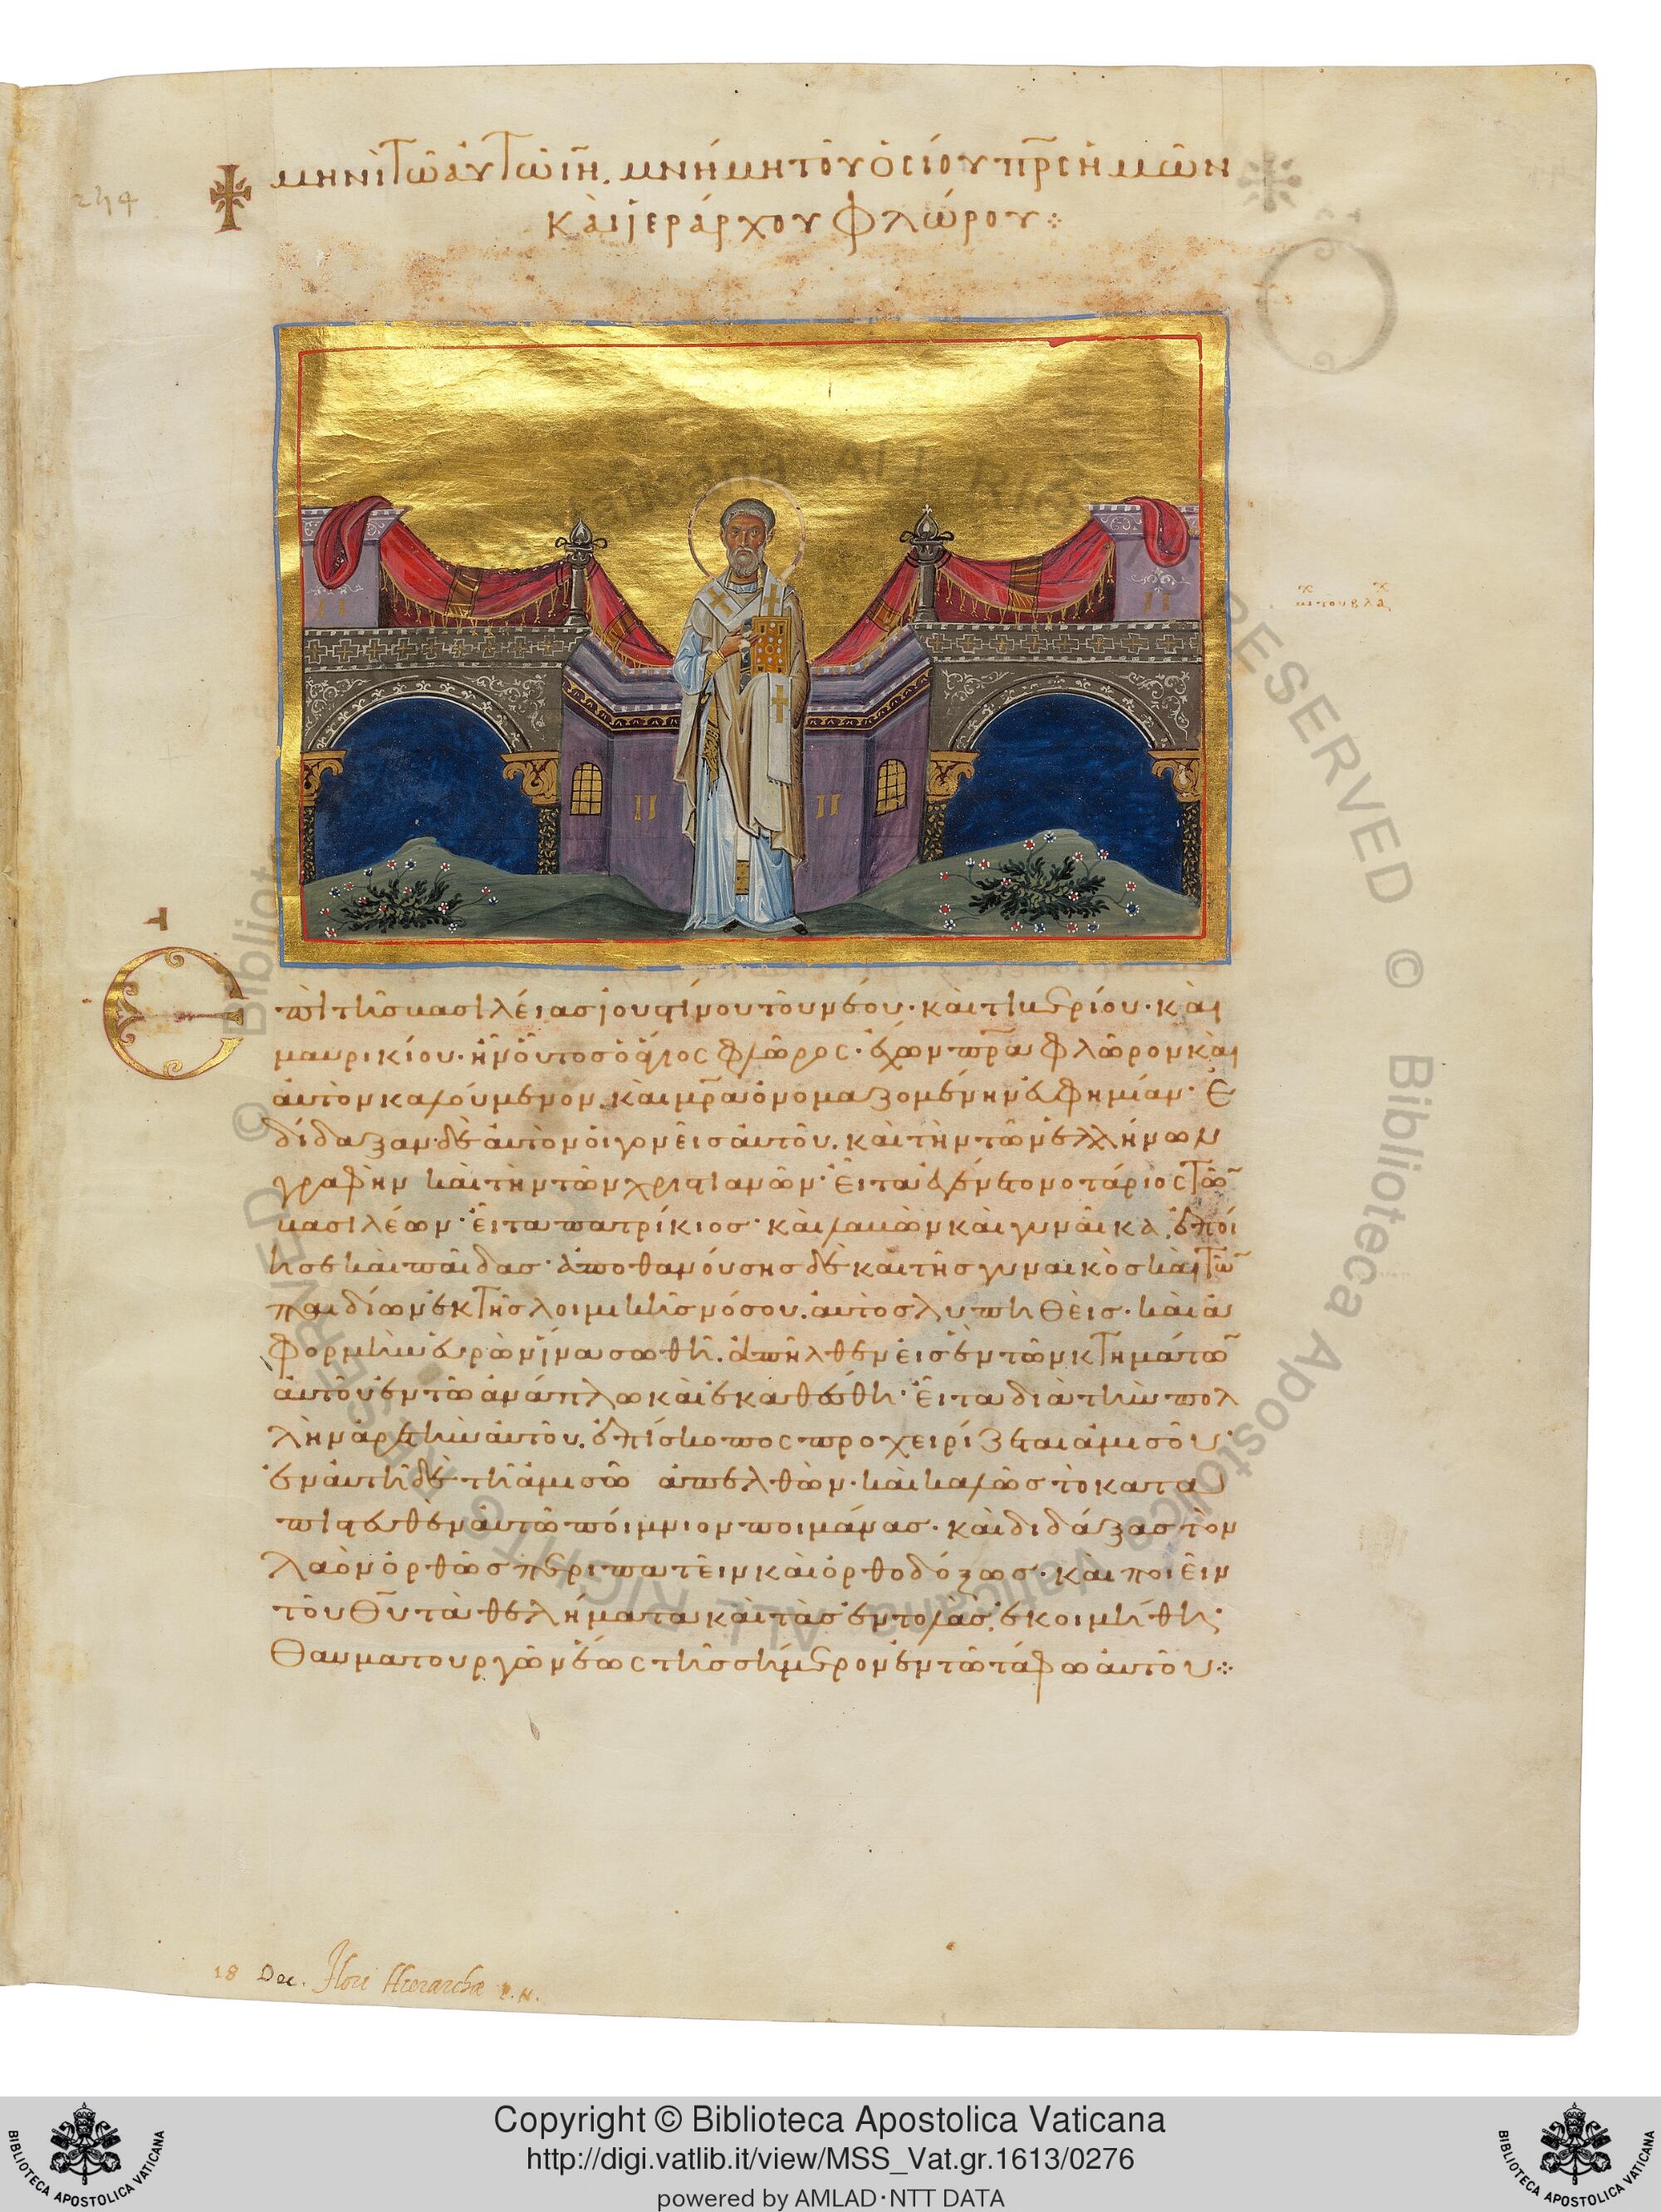 244
μηνὶ τῶ αὐτῶ ιη. μνήμη τοῦ ὁσίου πρς ἡμῶν
καὶ ἱεράρχου φλώρου
μι του βλα
Ἐπὶ τῆς βασιλείας ἰουστίνου τοῦ νέου· καὶ τιβερίου· καὶ
μαυρικίου· ἦν οὗτος ὁ ἅγιος φλῶρος· ἔχων πρα φλῶρον καὶ
αὐτὸν καλούμενον. καὶ μρα ὀνομαζομένην εὐφημίαν· ἐ
δίδαξαν δὲ αὐτὸν οἱ γονεῖς αὐτοῦ. καὶ τὴν τῶν ἑλλήνων
γραφὴν καὶ τὴν τῶν χριστιανῶν· εἶτα γένετο νοτάριος τῶ
βασιλέων· εἶτα πατρίκιος· καὶ λαβὼν καὶ γυναῖκα. ἐποί
ησε καὶ παῖδας· ἀποθανούσης δὲ καὶ τῆς γυναικὸς καὶ τῶ
παιδίων ἐκ τῆς λοιμικῆς νόσου. αὐτὸς λυπηθεὶς· καὶ ἀ
φορμὴν εὑρὼν ἵνα σωθῆ. ἀπῆλθεν εἰς ἓν τῶν κτημάτω
αὐτοῦ ἐν τῶ ἀνάπλω καὶ ἐκαθέσθη· εἶτα διὰ τὴν πολ
λὴν ἀρετὴν αὐτοῦ. ἐπίσκοπος προχειρίζεται ἀμισοῦ·
ἐν αὐτῆ δὲ τῆ ἀμισῶ ἀπελθὼν· καὶ καλῶς τὸ κατα
πιστευθὲν αὐτῶ ποίμνιον ποιμάνας· καὶ διδάξας τὸν
λαὸν ὀρθῶς περιπατεῖν καὶ ὀρθοδόξως· καὶ ποιεῖν
τοῦ θυ τὰ θελήματα καὶ τὰς ἐντολὰς. ἐκοιμήθη·
θαυματουργῶν ἕως τῆς σήμερον ἐν τῶ τάφω αὐτοῦ
18 Dec. Flori Hierarchæ P. N.
© Biblioteca Apostolica Vaticana ALL RIGHTS RESERVED
Copyright © Biblioteca Apostolica Vaticana
http://digi.vatlib.it/view/MSS_Vat.gr.1613/0276
powered by AMLAD·NTT DATA
BIBLIOTECA APOSTOLICA VATICANA
BIBLIOTECA APOSTOLICA VATICANA